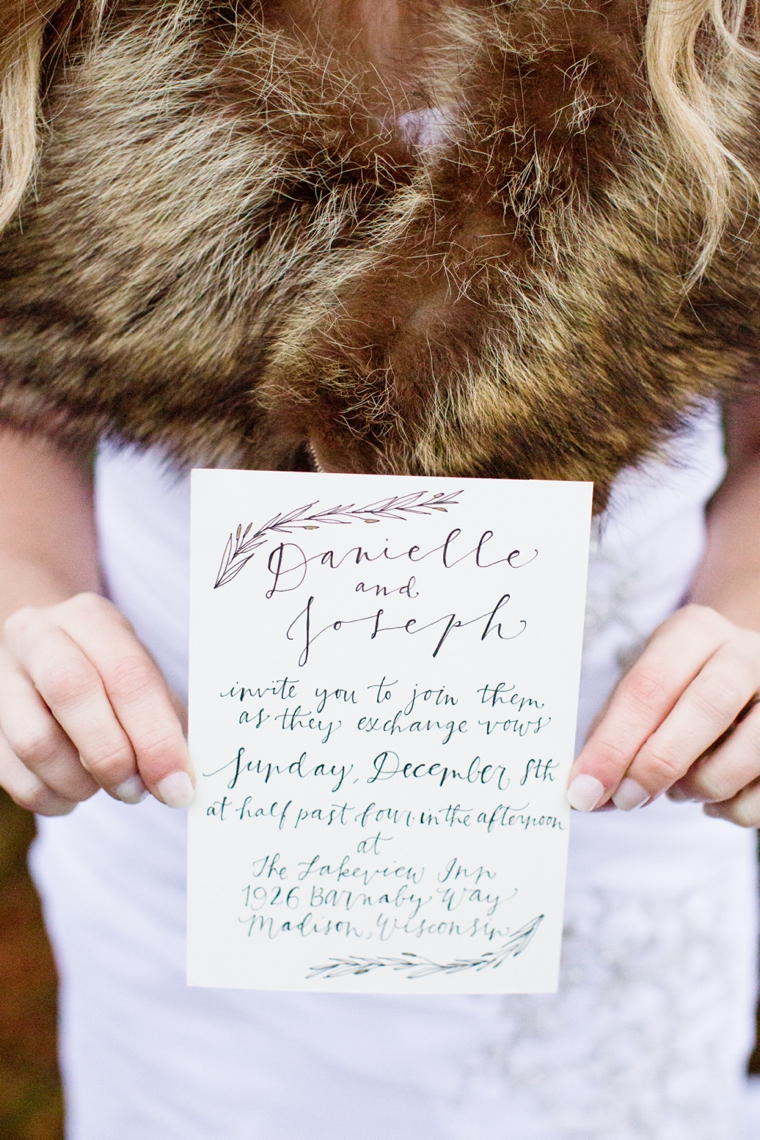 Danielle
and
Joseph
invite you to join them
as they exchange vows
Sunday, December 8th
at half past four in the afternoon
at
The Lakeview Inn
1926 Barnaby Way
Madison, Wisconsin